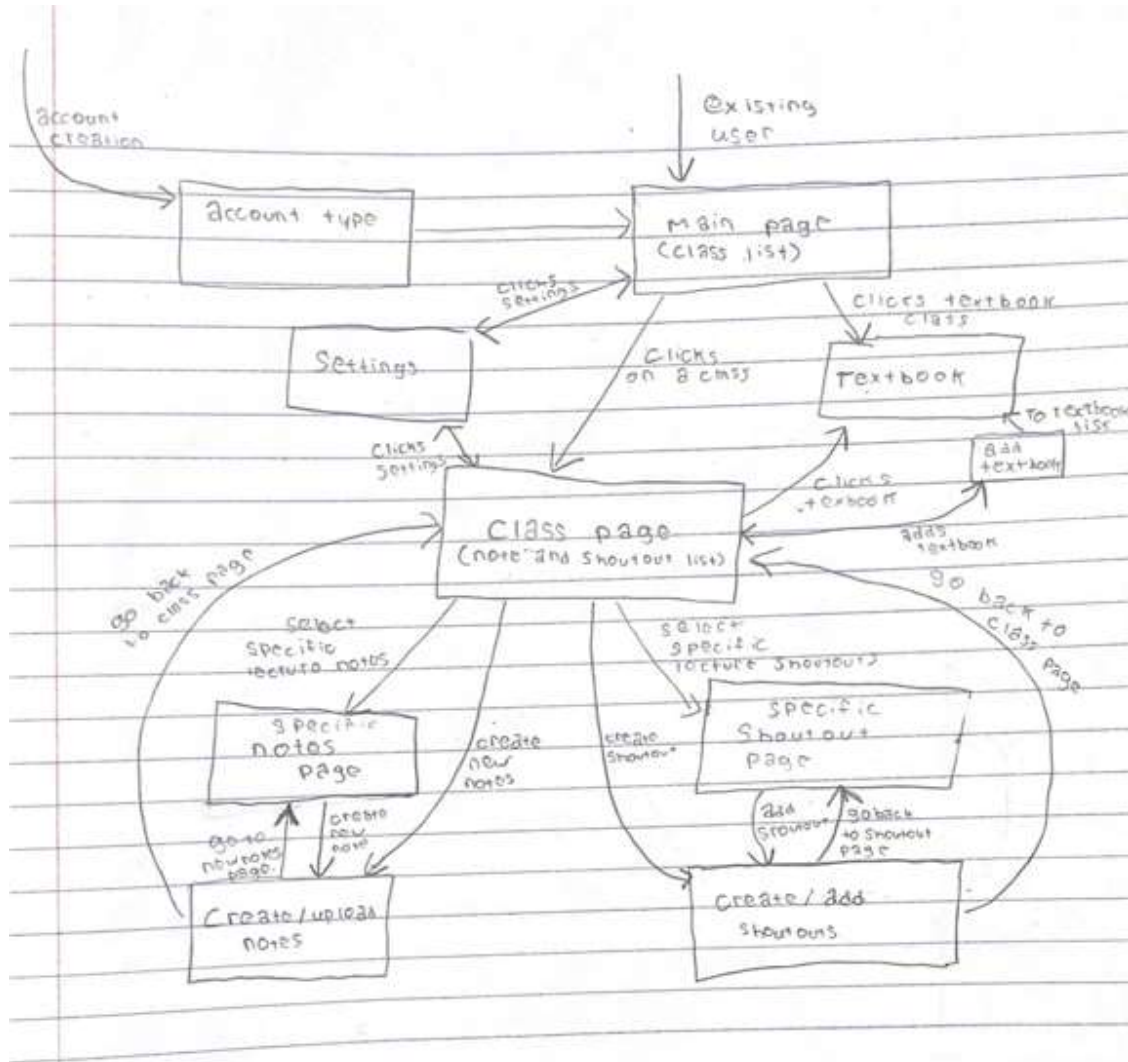 account
creation
existing
user
account type
main page
(class list)
clicks
settings
clicks textbook
class
Settings
clicks
on a class
Textbook
to textbook
list
add
textbook
clicks
settings
clicks
texbook
Class page
(note and shoutout list)
adds
textbook
go back
to class page
go back to
class page
select
specific
lecture notes
select
specific
lecture shoutouts
specific
notes
page
create
new
notes
create
shoutout
specific
shoutout
page
go to
new notes
page
create
new
note
add
shoutout
go back
to shoutout
page
Create/upload
notes
create/add
shoutouts